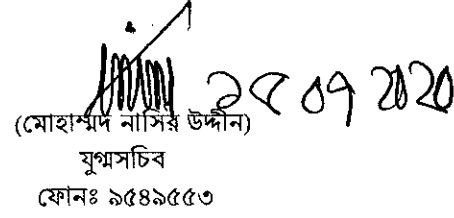 ১৫ ০৭ ২০২০
(মোহাম্মদ নাসির উদ্দীন)
যুগ্মসচিব
ফোনঃ ৯৫৪৯৫৫৩